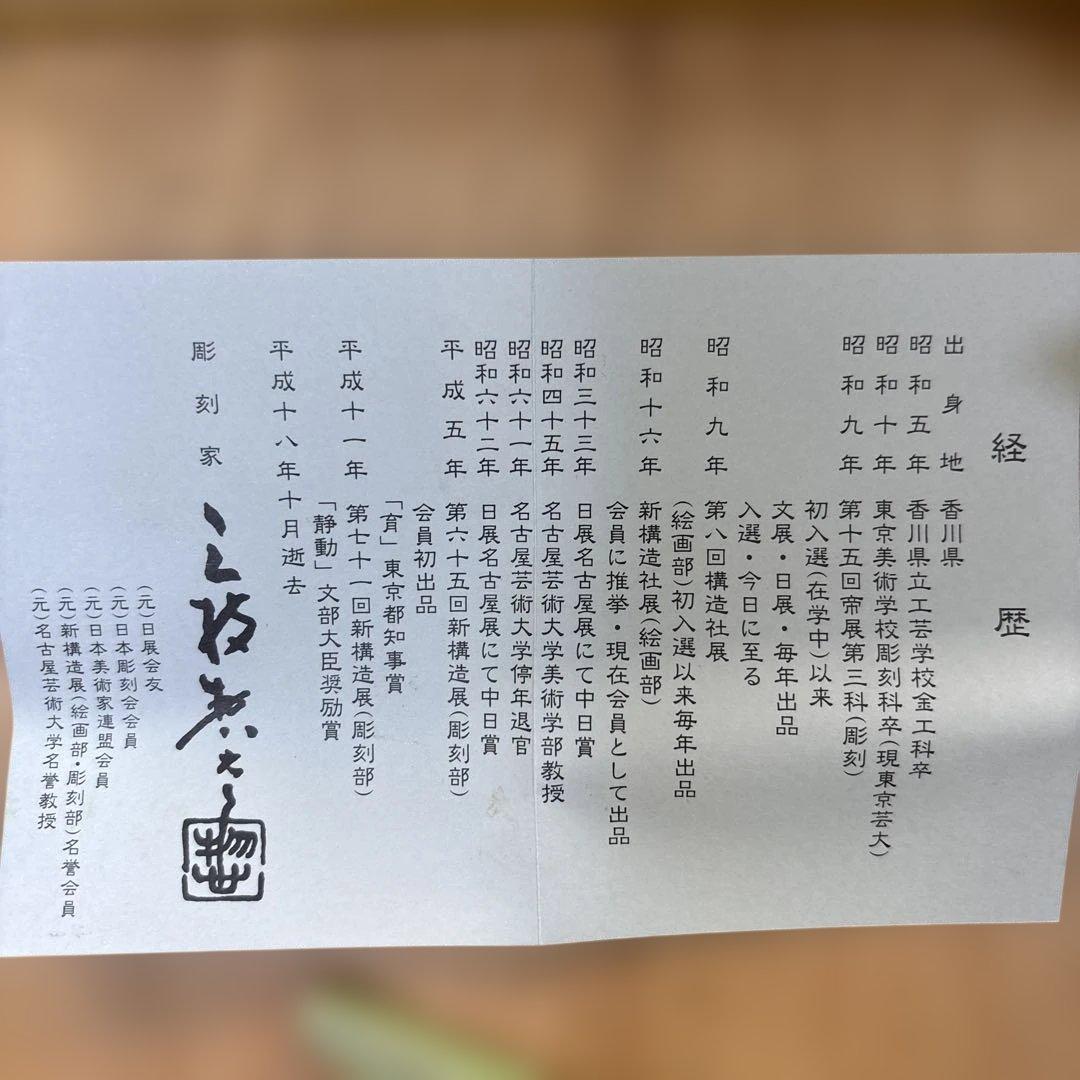 経歴
出身地 香川県
昭和五年 香川県立工芸学校金工科卒
昭和十年 東京美術学校彫刻科卒(現東京芸大)
昭和九年 第十五回帝展第三科(彫刻)
初入選(在学中)以来
文展・日展・毎年出品
入選・今日に至る
昭和九年 第八回構造社展
(絵画部)初入選以来毎年出品
昭和十六年 新構造社展(絵画部)
会員に推挙・現在会員として出品
昭和三十三年 日展名古屋展にて中日賞
昭和四十五年 名古屋芸術大学美術学部教授
昭和六十一年 名古屋芸術大学停年退官
昭和六十二年 日展名古屋展にて中日賞
平成五年 第六十五回新構造展(彫刻部)
会員初出品
「育」東京都知事賞
平成十一年 第七十一回新構造展(彫刻部)
「静動」文部大臣奨励賞
平成十八年十月逝去
彫刻家
(元)日展会友
(元)日本彫刻会会員
(元)日本美術家連盟会員
(元)新構造展(絵画部・彫刻部)名誉会員
(元)名古屋芸術大学名誉教授